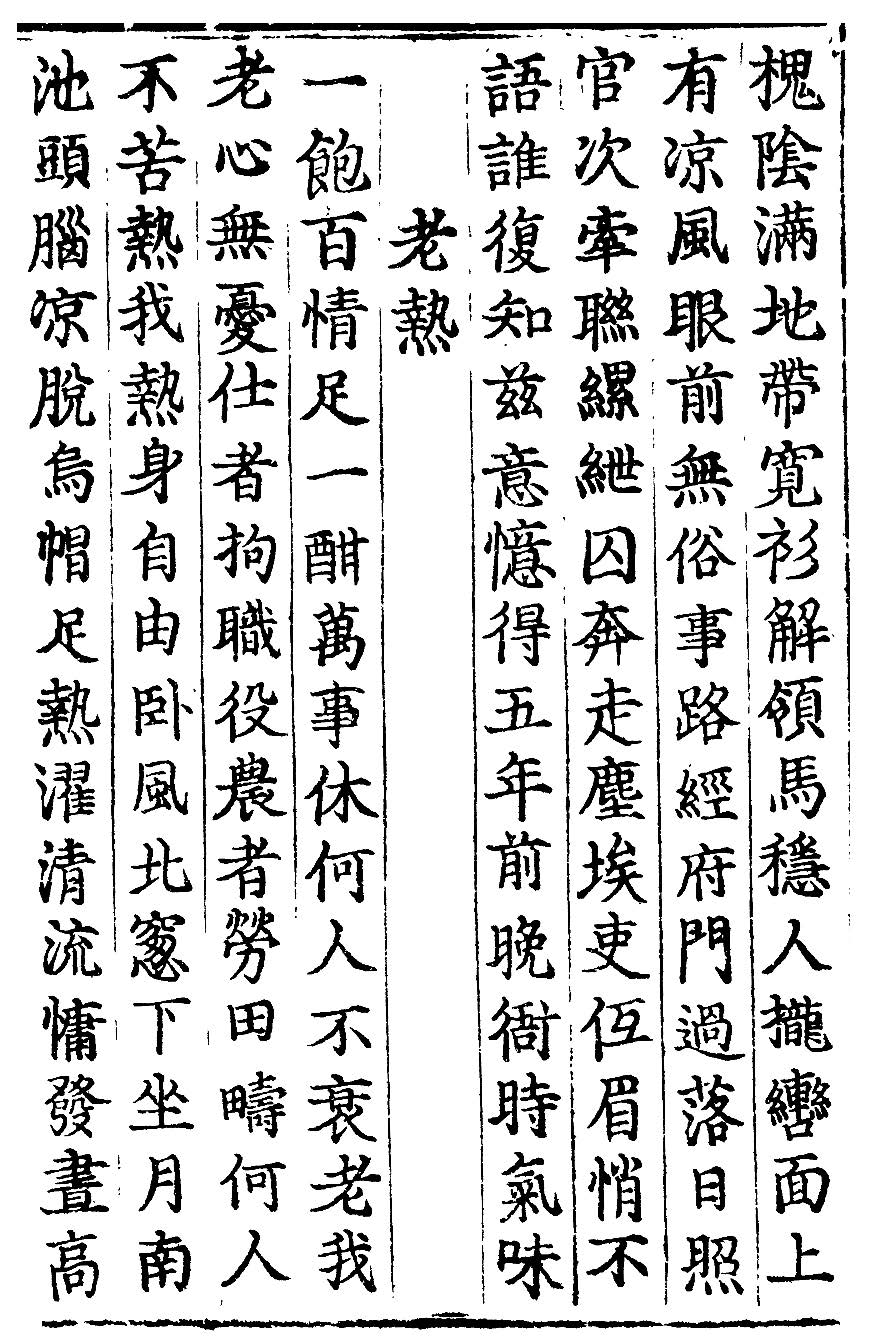 槐陰滿地帶寛衫解領馬穩人攏轡面上
有凉風眼前無俗事路經府門過落日照
官次牽聯縲紲囚奔走塵埃吏伍眉悄不
語誰復知兹意憶得五年前晚衙時氣味
老熱
一飽百情足一酣萬事休何人不衰老我
老心無憂仕者拘職役農者勞田疇何人
不苦熱我熱身自由卧風北窻下坐月南
池頭腦凉脫烏帽足熱濯清流慵發晝高